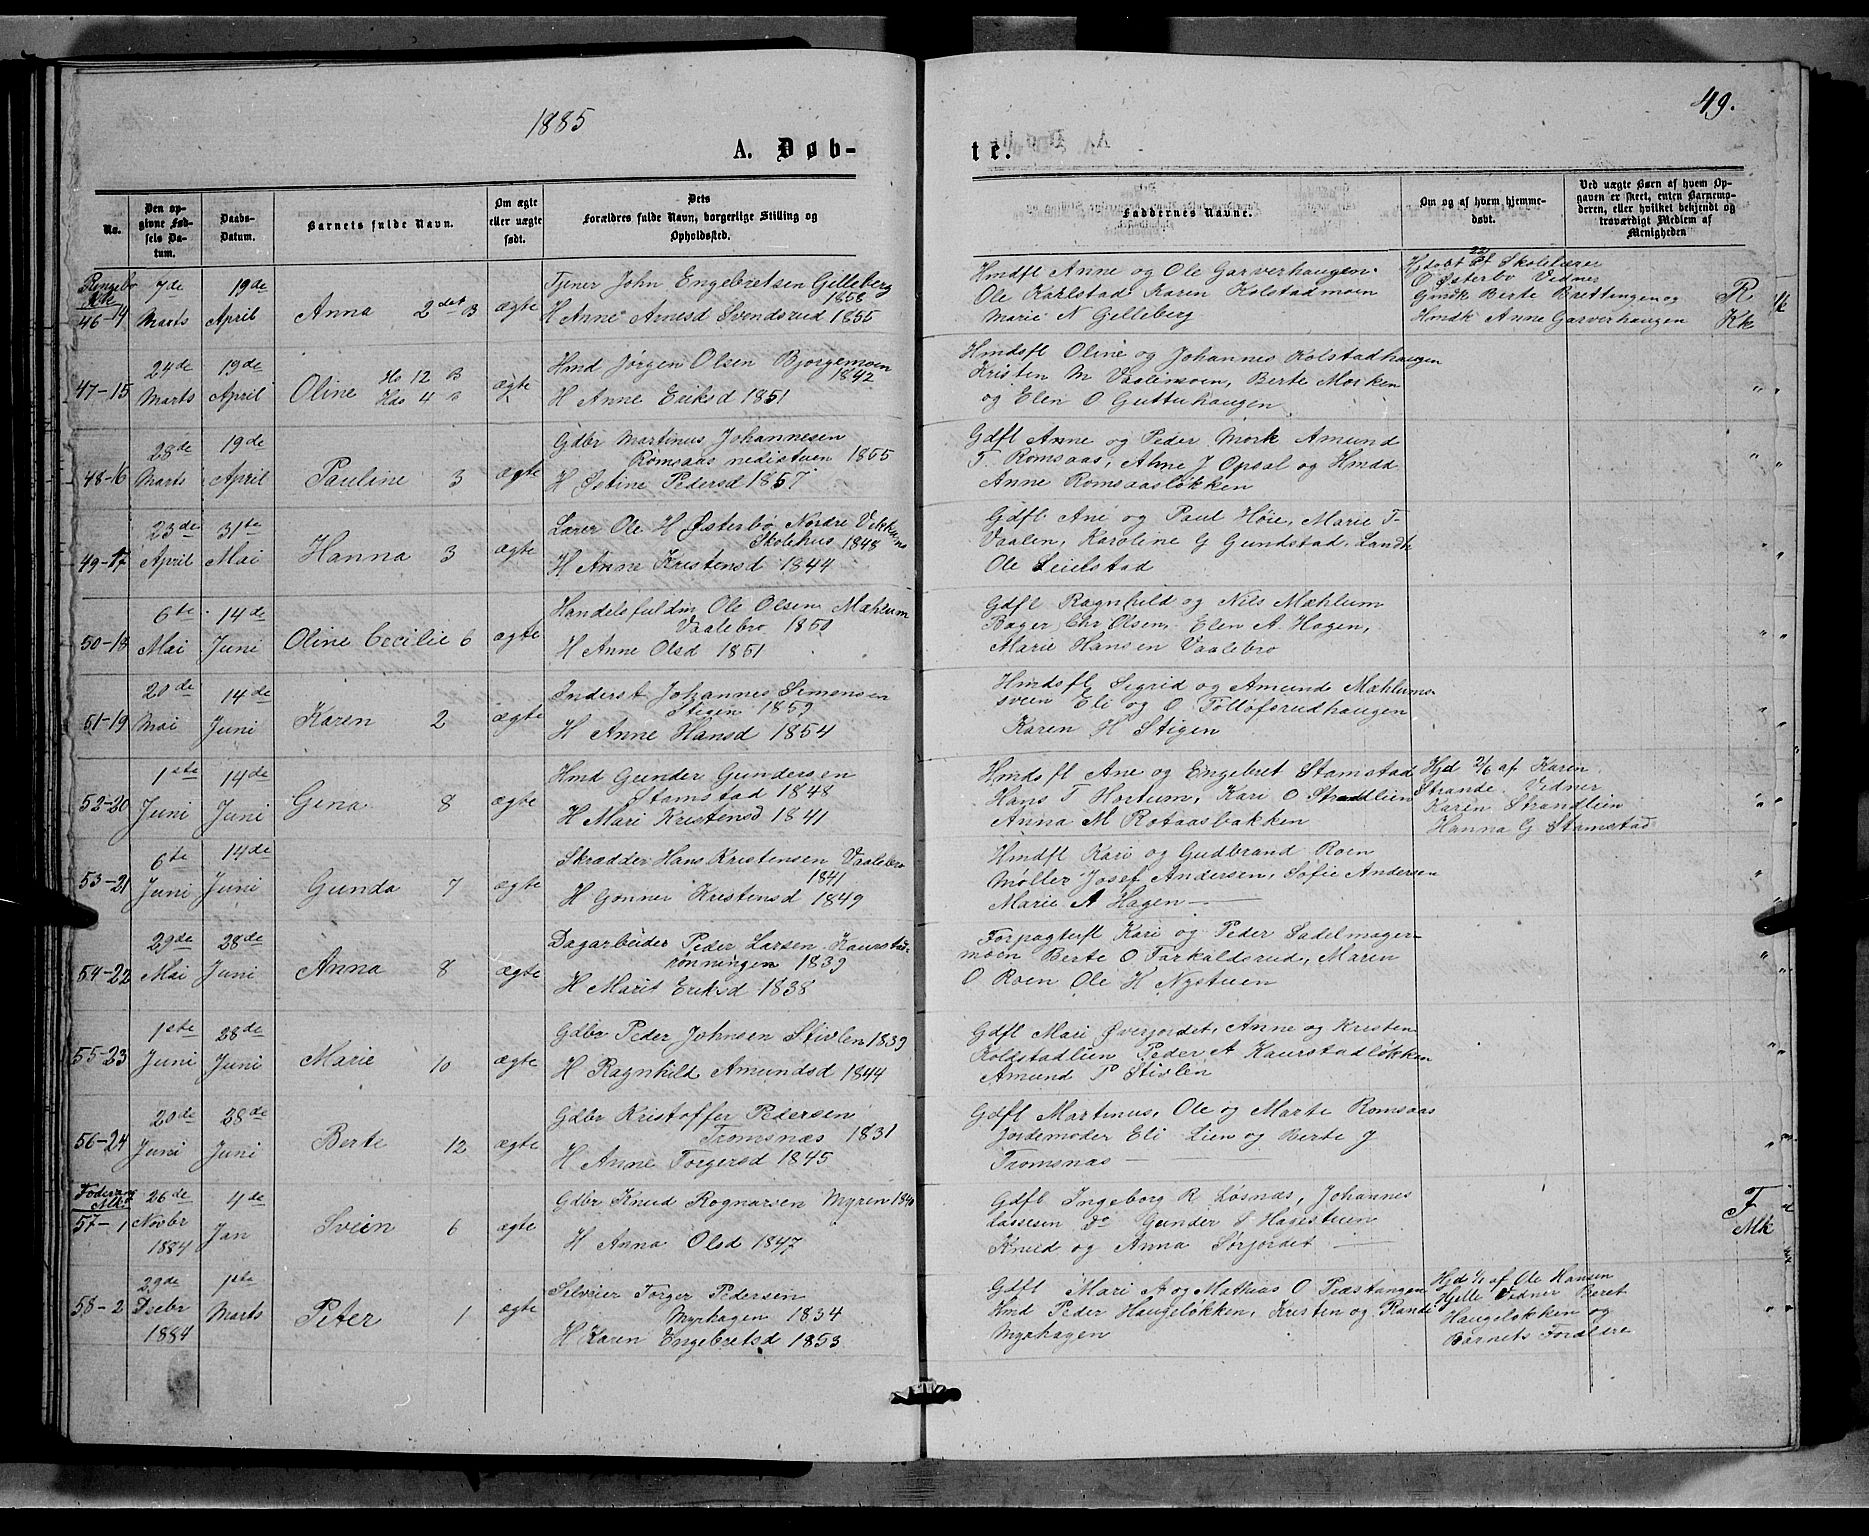 1885
49.
A. Døb-
te.
No.
Den op-
givne Fød-
sels Da-
tum.
Daabs-
Datum.
Barnets fulde Navn.
Om ægte
eller uægte
født.
Dets
Forældres fulde Navn, borgerlige Stilling og
Opholdssted.
Faddernes Navne.
Om og af hvem hjemme-
døbt.
Ved uægte Børn af hvem Op-
gaven er skeet, enten Barnemo-
deren, eller hvilket bekjendt og
troværdigt Medlem af
Menigheden
Ringebo
46-14
7de
Marts
19de
April
Anna 2det B
ægte
Tjener John Engebretsen Gilleberg
1858
H Anne Arnesd Svendsrud 1855
Hmdfl Anne og Ole Garverhaugen
Ole Karlstad Karen Kolstadmoen
Marie N Gilleberg
Hjdøbt 22/ Skolelærer
O Østerbø Vidner
Gmdk Berte Brettingen og
Hmdk Anne Garverhaugen
R
Kk
47-15
24de
Marts
19de
April
Oline Ho 12 B
Hds 4 B
ægte
Hmd Jørgen Olsen Bjørgemoen
1842
H Anne Eriksd 1851
Hmdsfl Oline og Johannes Kolstadhaugen
Kristen M Vaalimoen, Berte Morken
og Elen O Guttuhaugen
48-16
28de
Marts
19de
April
Pauline 3
ægte
Gdbr Martinus Johannesen
Romsaas nedistuen 1855
H Østine Pedersd 1857
Gdfl Anne og Peder Mork Amund
T. Romsaas, Anne J Opsal og Hmdd
Anne Romsaasløkken
49-17
23de
April
31te
Mai
Hanna 3
ægte
Lærer Ole H Østerbø Nordre Vekkums
Skolehus 1848
H Anne Kristensd 1844
Gdfl Ane og Paul Høie, Marie T.
Vaalen, Karoline G Gundstad, Landh
Ole Leielstad
50-18
6te
Mai
14de
Juni
Oline Cecilie 6
ægte
Handelsfuldm Ole Olsen Mæhlum
Vaalebro 1850
H Anne Olsd 1851
Gdfl Ragnhild og Nils Mæhlum
Bager Chr Olsen, Elen A Hagen,
Marie Hansen Vaalebro
51-19
20de
Mai
14de
Juni
Karen 2
ægte
Inderst Johannes Simensen
Stigen 1859
H Anne Hansd 1854
Hmdsfl Sigrid og Amund Mæhlums-
sveen Eli og O Tolloforudhaugen
Karen H Stigen
52-20
1ste
Juni
14de
Juni
Gina 8
ægte
Hmd Gunder Gundersen
Stamstad 1848
H Mari Kristensd 1841
Hmdsfl Ane og Engebret Stamstad
Hans T Hortum, Kari O Strandlien
Anna M Rotaasbakken
Hjd 2/6 af Karen
Strande. Vidner
Karen Strandlien
Hanna G Stamstad
53-21
6te
Juni
14de
Juni
Gunda 7
ægte
Skrædder Hans Kristensen Vaalebro
1841
H Gonner Kristensd 1849
Hmdfl Kari og Gudbrand Roen
Møller Josef Andersen, Sofie Andersen
Marie A Hagen
54-22
29de
Mai
28de
Juni
Anna 8
ægte
Dagarbeider Peder Larsen Kaurstad-
rønningen 1839
H Marit Eriksd 1838
Forpagterfl Kari og Peder Sadelmager-
moen Berte O Forkaldsrud, Maren
O Roen Ole H Nystuen
55-23
1ste
Juni
28de
Juni
Marie 10
ægte
Gdbr Peder Johnsen Stivlen 1839
H Ragnhild Amundsd 1844
Gdfl Mari Øverjordet, Anne og Kristen
Koldstadlien Peder A Kaurstadløkken
Amund P Stivlen
56-24
20de
Juni
28de
Juni
Berte 12
ægte
Gdbr Kristoffer Pedersen
Tromsnæs 1831
H Anne Torgersd 1845
Gdfl Martinus, Ole og Marte Romsaas
Jordemoder Eli Lien og Berte J
Tromsnæs
57-1
26de
Novbr
1884
4de
Jan
Svein 6
ægte
Gdbr Knud Rognarsen Myren 1840
H Anna Olsd 1847
Gdfl Ingeborg R Løsnæs, Johannes
Lassesen Do Gunder S Hagestuen
Knud og Anna Sørjordet
F
Mk
58-2
29de
Decbr
1884
1ste
Marts
Peter 1
ægte
Selveier Torger Pedersen
Myrhagen 1834
H Karen Engebretsd 1853
Gdfl Mari A og Mathias O Pedstangen
Hmd Peder Haugeløkken, Kristen og Randi
Myrhagen
Hjd 1/1 af Ole Hansen
Hjelle Vidner Beret
Haugeløkken og
Barnets Forældre